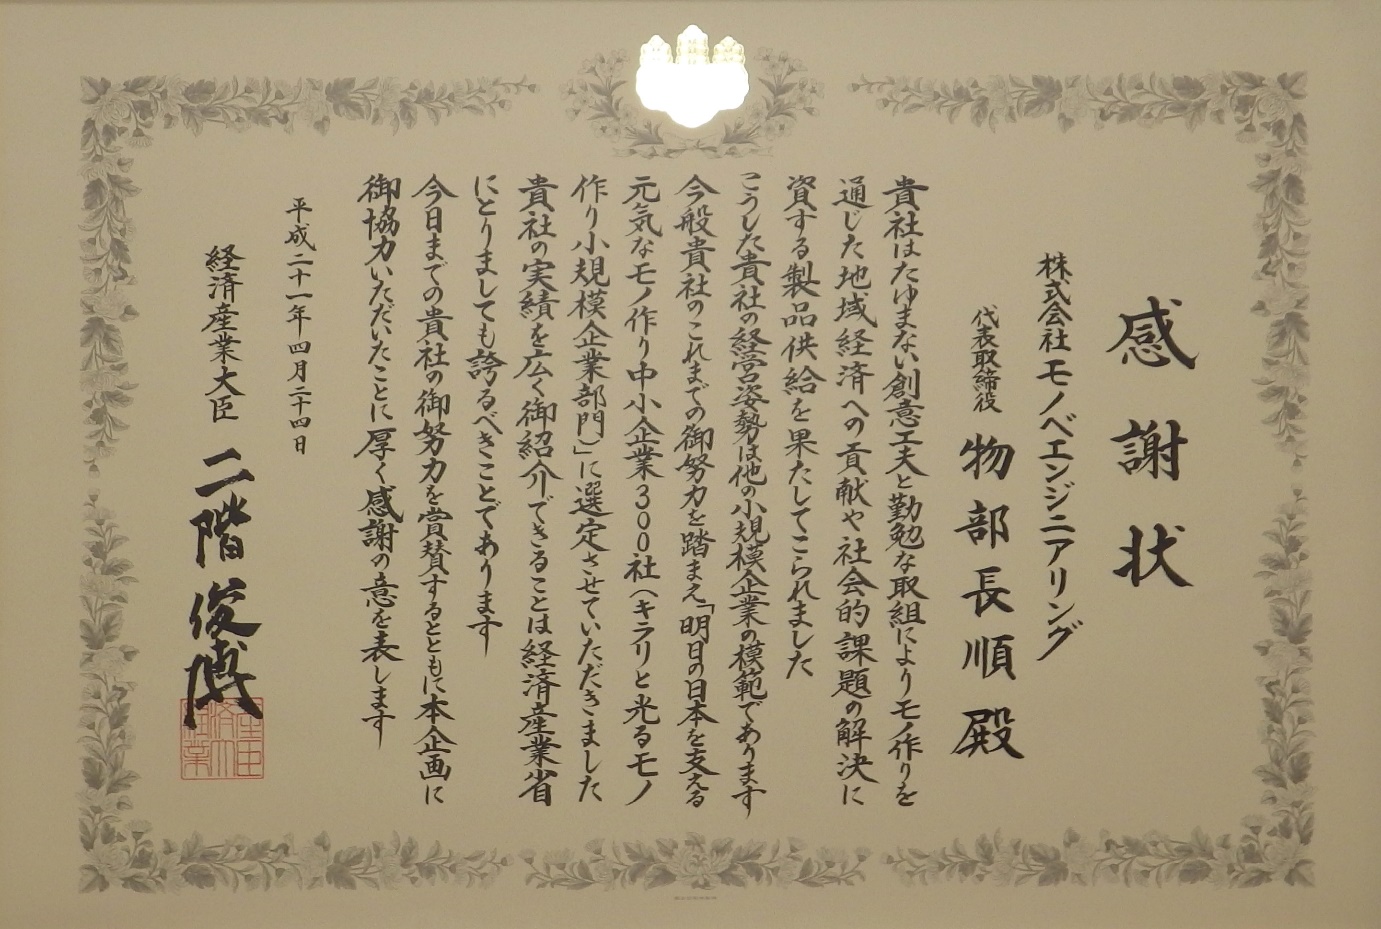 感謝状
株式会社モノベエンジニアリング
代表取締役 物部長順殿
貴社はたゆまない創意工夫と勤勉な取組によりモノ作りを
通じた地域経済への貢献や社会的課題の解決に
資する製品供給を果たしてこられました
こうした貴社の経営姿勢は他の小規模企業の模範であります
今般貴社のこれまでの御努力を踏まえ「明日の日本を支える
元気なモノ作り中小企業300社(キラリと光るモノ
作り小規模企業部門)」に選定させていただきました
貴社の実績を広く御紹介できることは経済産業省
にとりましても誇るべきことであります
今日までの貴社の御努力を賞賛するとともに本企画に
御協力いただいたことに厚く感謝の意を表します
平成二十一年四月二十四日
経済産業大臣 二階俊博